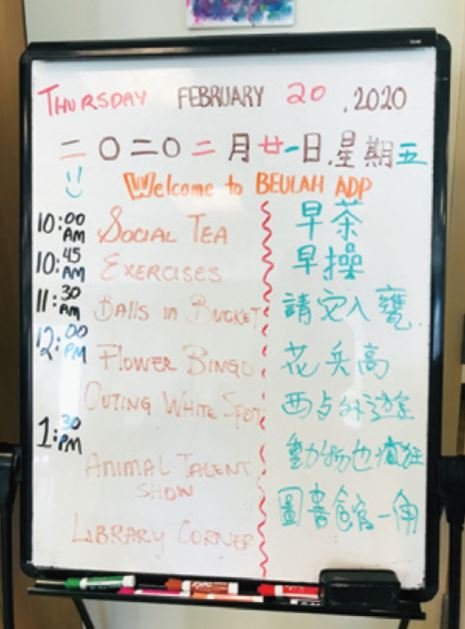 THURSDAY FEBRUARY 20 .2020
二〇二〇二月廿一日.星期五
Welcome to BEULAH ADP
10:00 AM SOCIAL TEA 早茶
10:45 AM EXERCISES 早操
11:30 AM BALLS in BUCKET 請它入甕.
12:00 PM FLOWER BINGO 花兵高
OUTING WHITE SPOT 西点外遊
1:30 PM
ANIMAL TALENT SHOW 動物也瘋狂
LIBRARY CORNER 圖書館一角